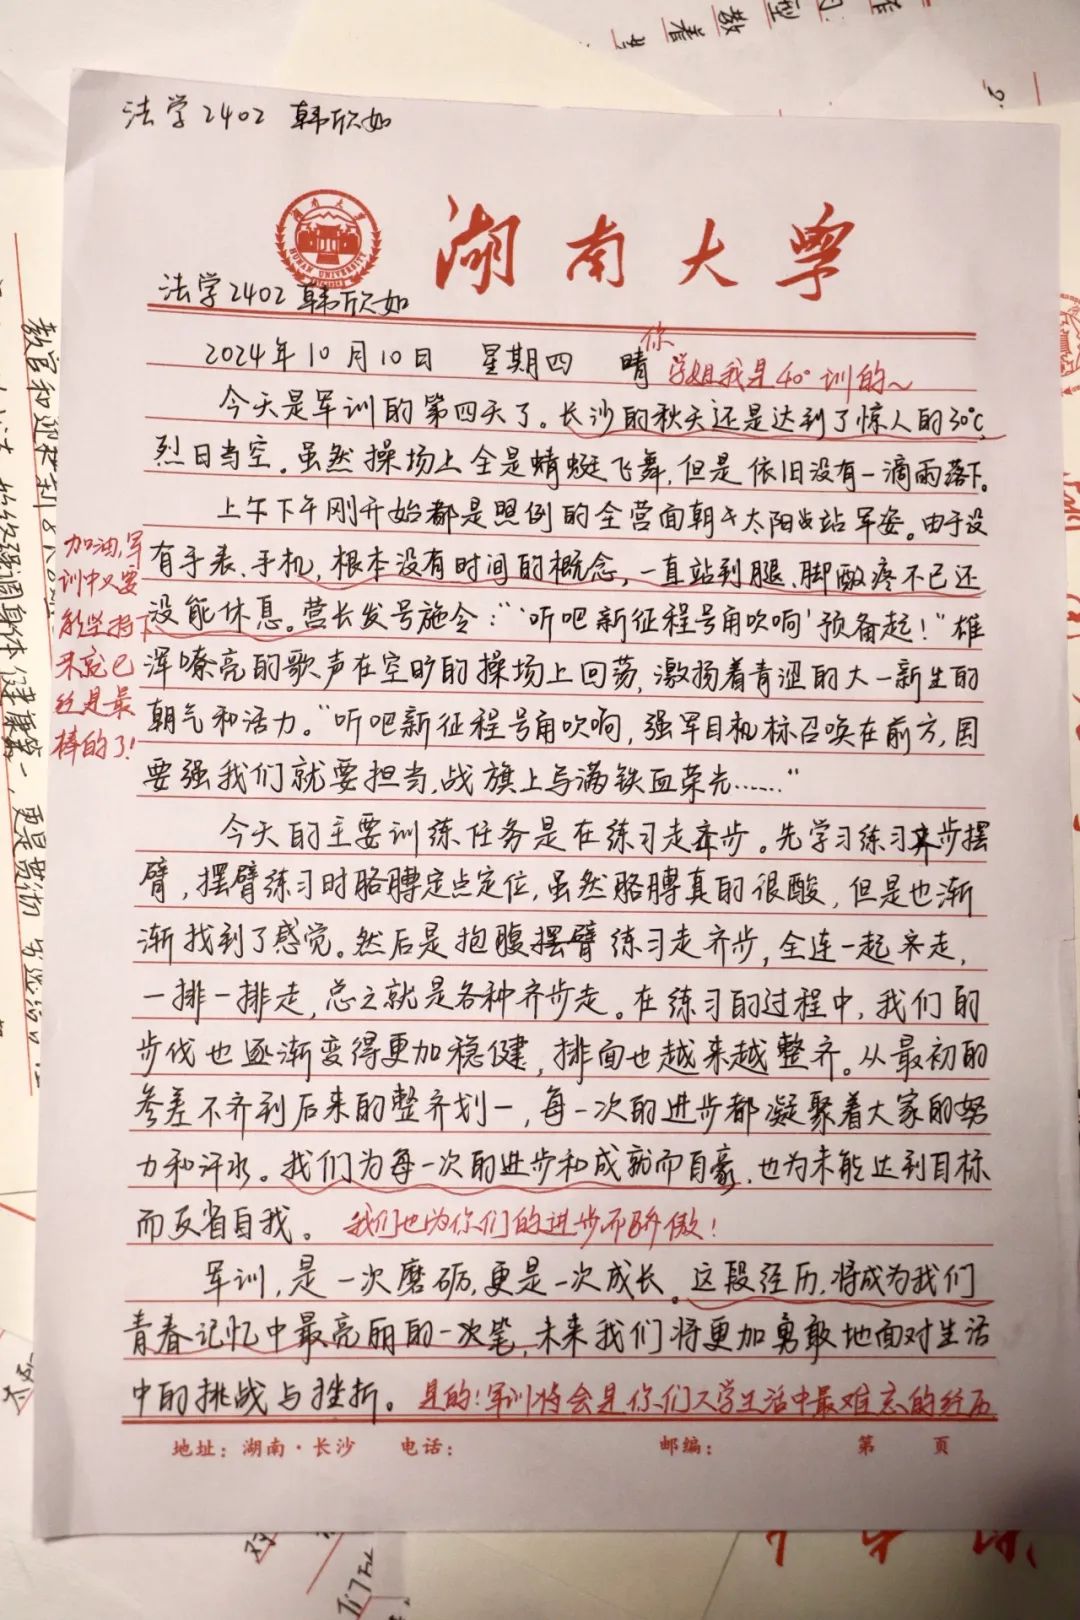 法学2402 韩欣如
湖南大学
HUNAN UNIVERSITY
法学2402 韩欣如
2024年10月10日 星期四 晴 你学姐我是40°训的~
今天是军训的第四天了。长沙的秋天还是达到了惊人的30℃,
烈日当空。虽然操场上全是蜻蜓飞舞,但是依旧没有一滴雨落下。
上午下午刚开始都是照例的全营面朝太阳站军姿。由于没
有手表、手机,根本没有时间的概念,一直站到腿、脚酸疼不已还
没能休息。营长发号施令:“‘听吧新征程号角吹响’预备起!”雄
浑嘹亮的歌声在空旷的操场上回荡,激扬着青涩的大一新生的
朝气和活力。“听吧新征程号角吹响,强军目标召唤在前方,国
要强我们就要担当,战旗上写满铁血荣光……“
今天的主要训练任务是在练习走齐步。先学习练习齐步摆
臂,摆臂练习时胳膊定点定位,虽然胳膊真的很酸,但是也渐
渐找到了感觉。然后是抱腹摆臂练习走齐步,全连一起齐走,
一排一排走,总之就是各种齐步走。在练习的过程中,我们的
步伐也逐渐变得更加稳健,排面也越来越整齐。从最初的
参差不齐到后来的整齐划一,每一次的进步都凝聚着大家的努
力和汗水。我们为每一次的进步和成就而自豪,也为未能达到目标
而反省自我。 我们也为你们的进步而骄傲!
军训,是一次磨砺,更是一次成长。这段经历,将成为我们
青春记忆中最亮丽的一次笔,未来我们将更加勇敢地面对生活
中的挑战与挫折。 是的!军训将会是你们大学生活中最难忘的经历
地址:湖南·长沙 电话: 邮编: 第 页
加油,军
训中只要
能坚持下
来就已
经是最
棒的了!
教官和
始终强调身体健康第一,